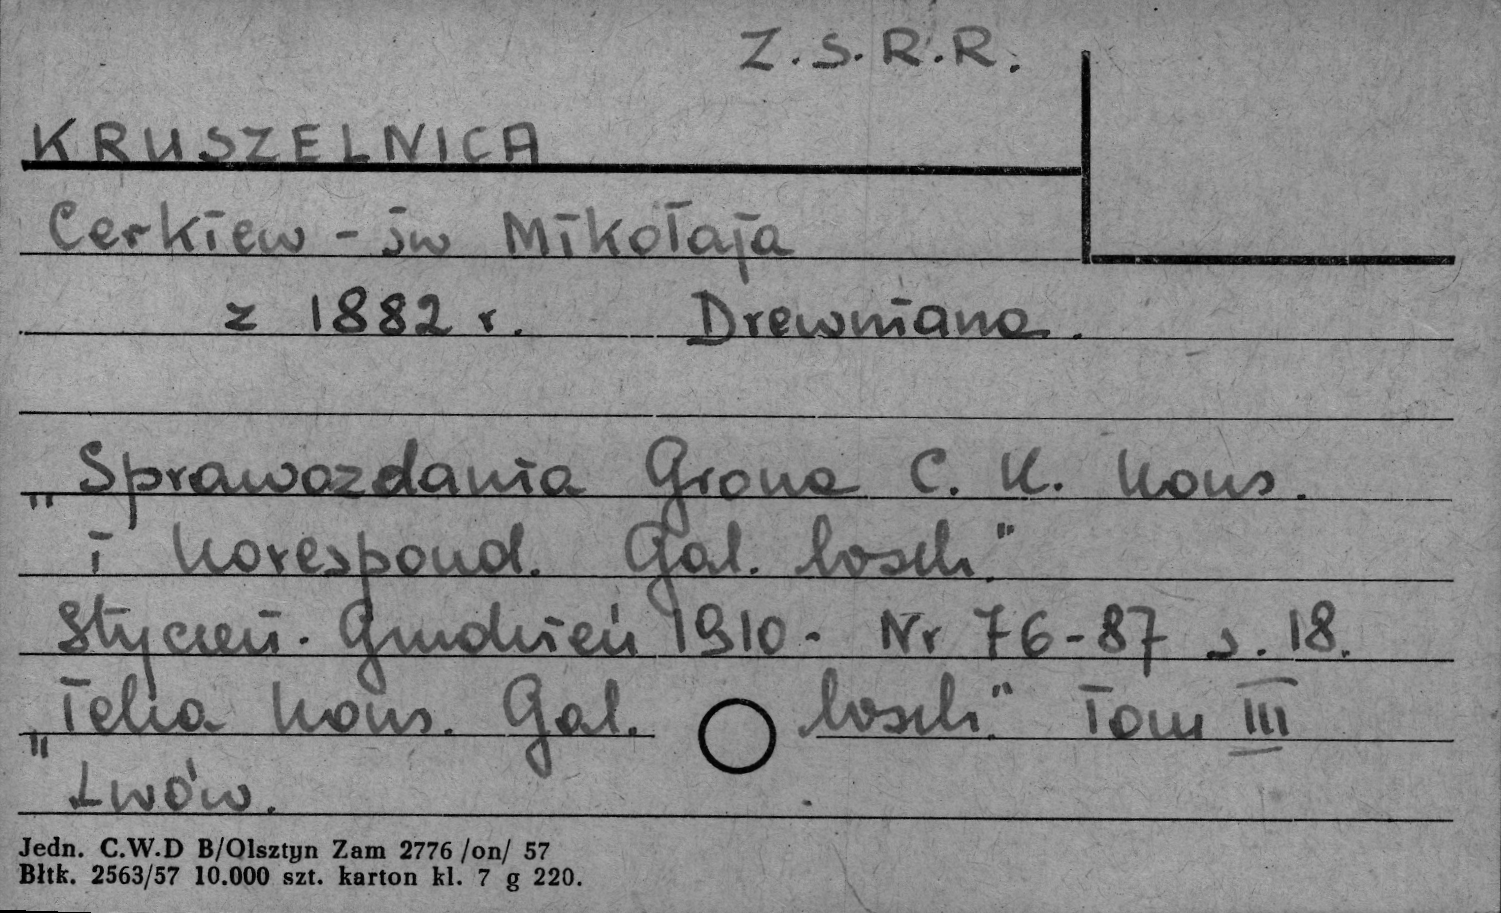 Z.S.R.R.
KRUSZELNICA
Cerkiew - św Mikołaja
z 1882 r. Drewniana.
„Sprawozdania Grona C. K. Kons.
i Korespond. Gal. Wsch."
Styczeń - Grudzień 1910 - Nr 76-87 s. 18.
„Teka Kons. Gal. Wsch." Tom III
Lwów.
Jedn. C.W.D B/Olsztyn Zam 2776 /on/ 57
Błtk. 2563/57 10.000 szt. karton kl. 7 g 220.